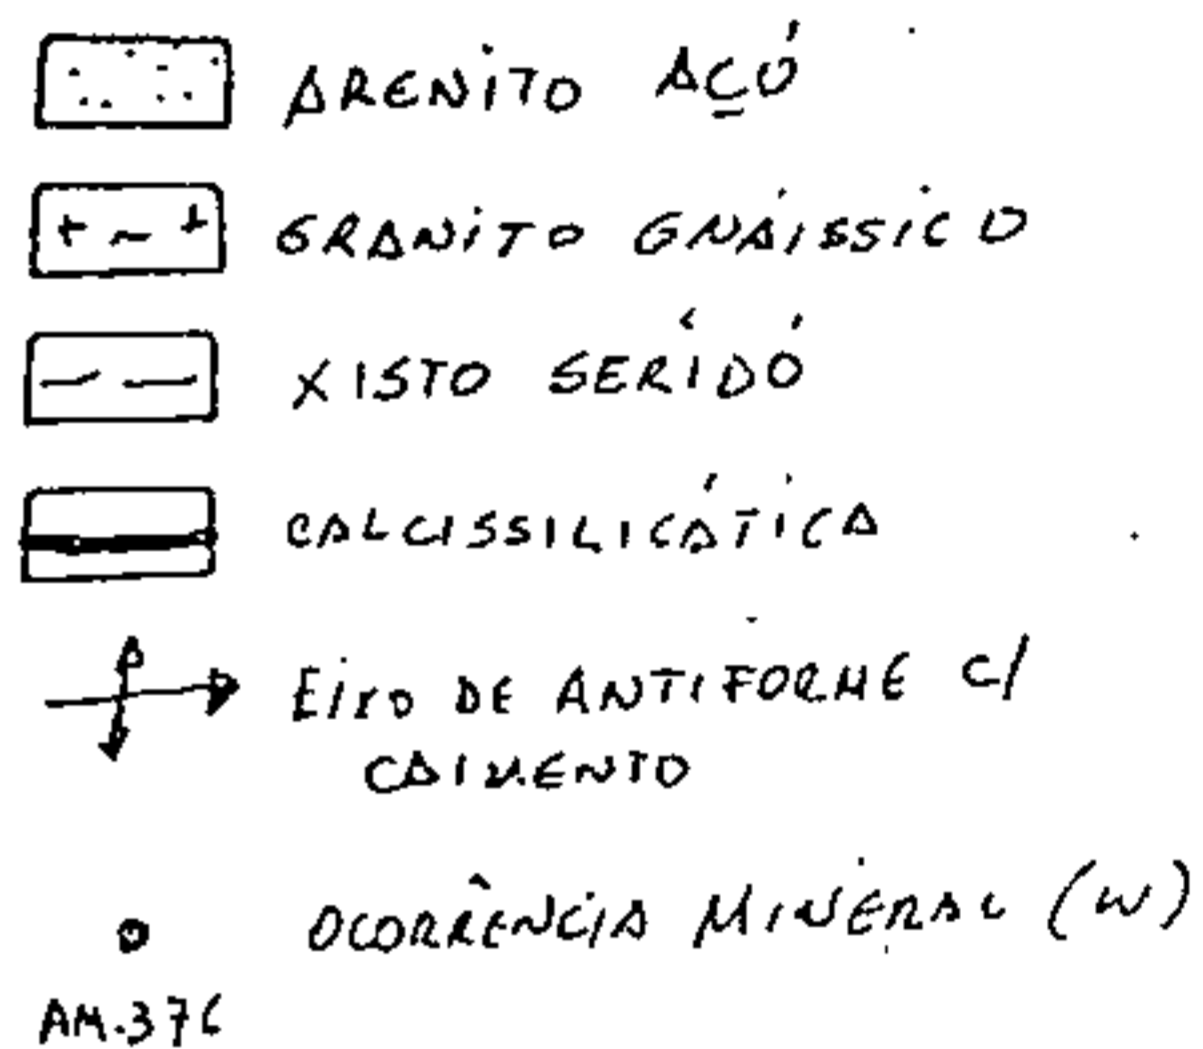 ARENITO AÇÚ
GRANITO GNÁISSICO
XISTO SERIDÓ
CALCISSILICÁTICA
EIXO DE ANTIFORME C/
CAIMENTO
OCORRÊNCIA MINERAL (W)
AM.376